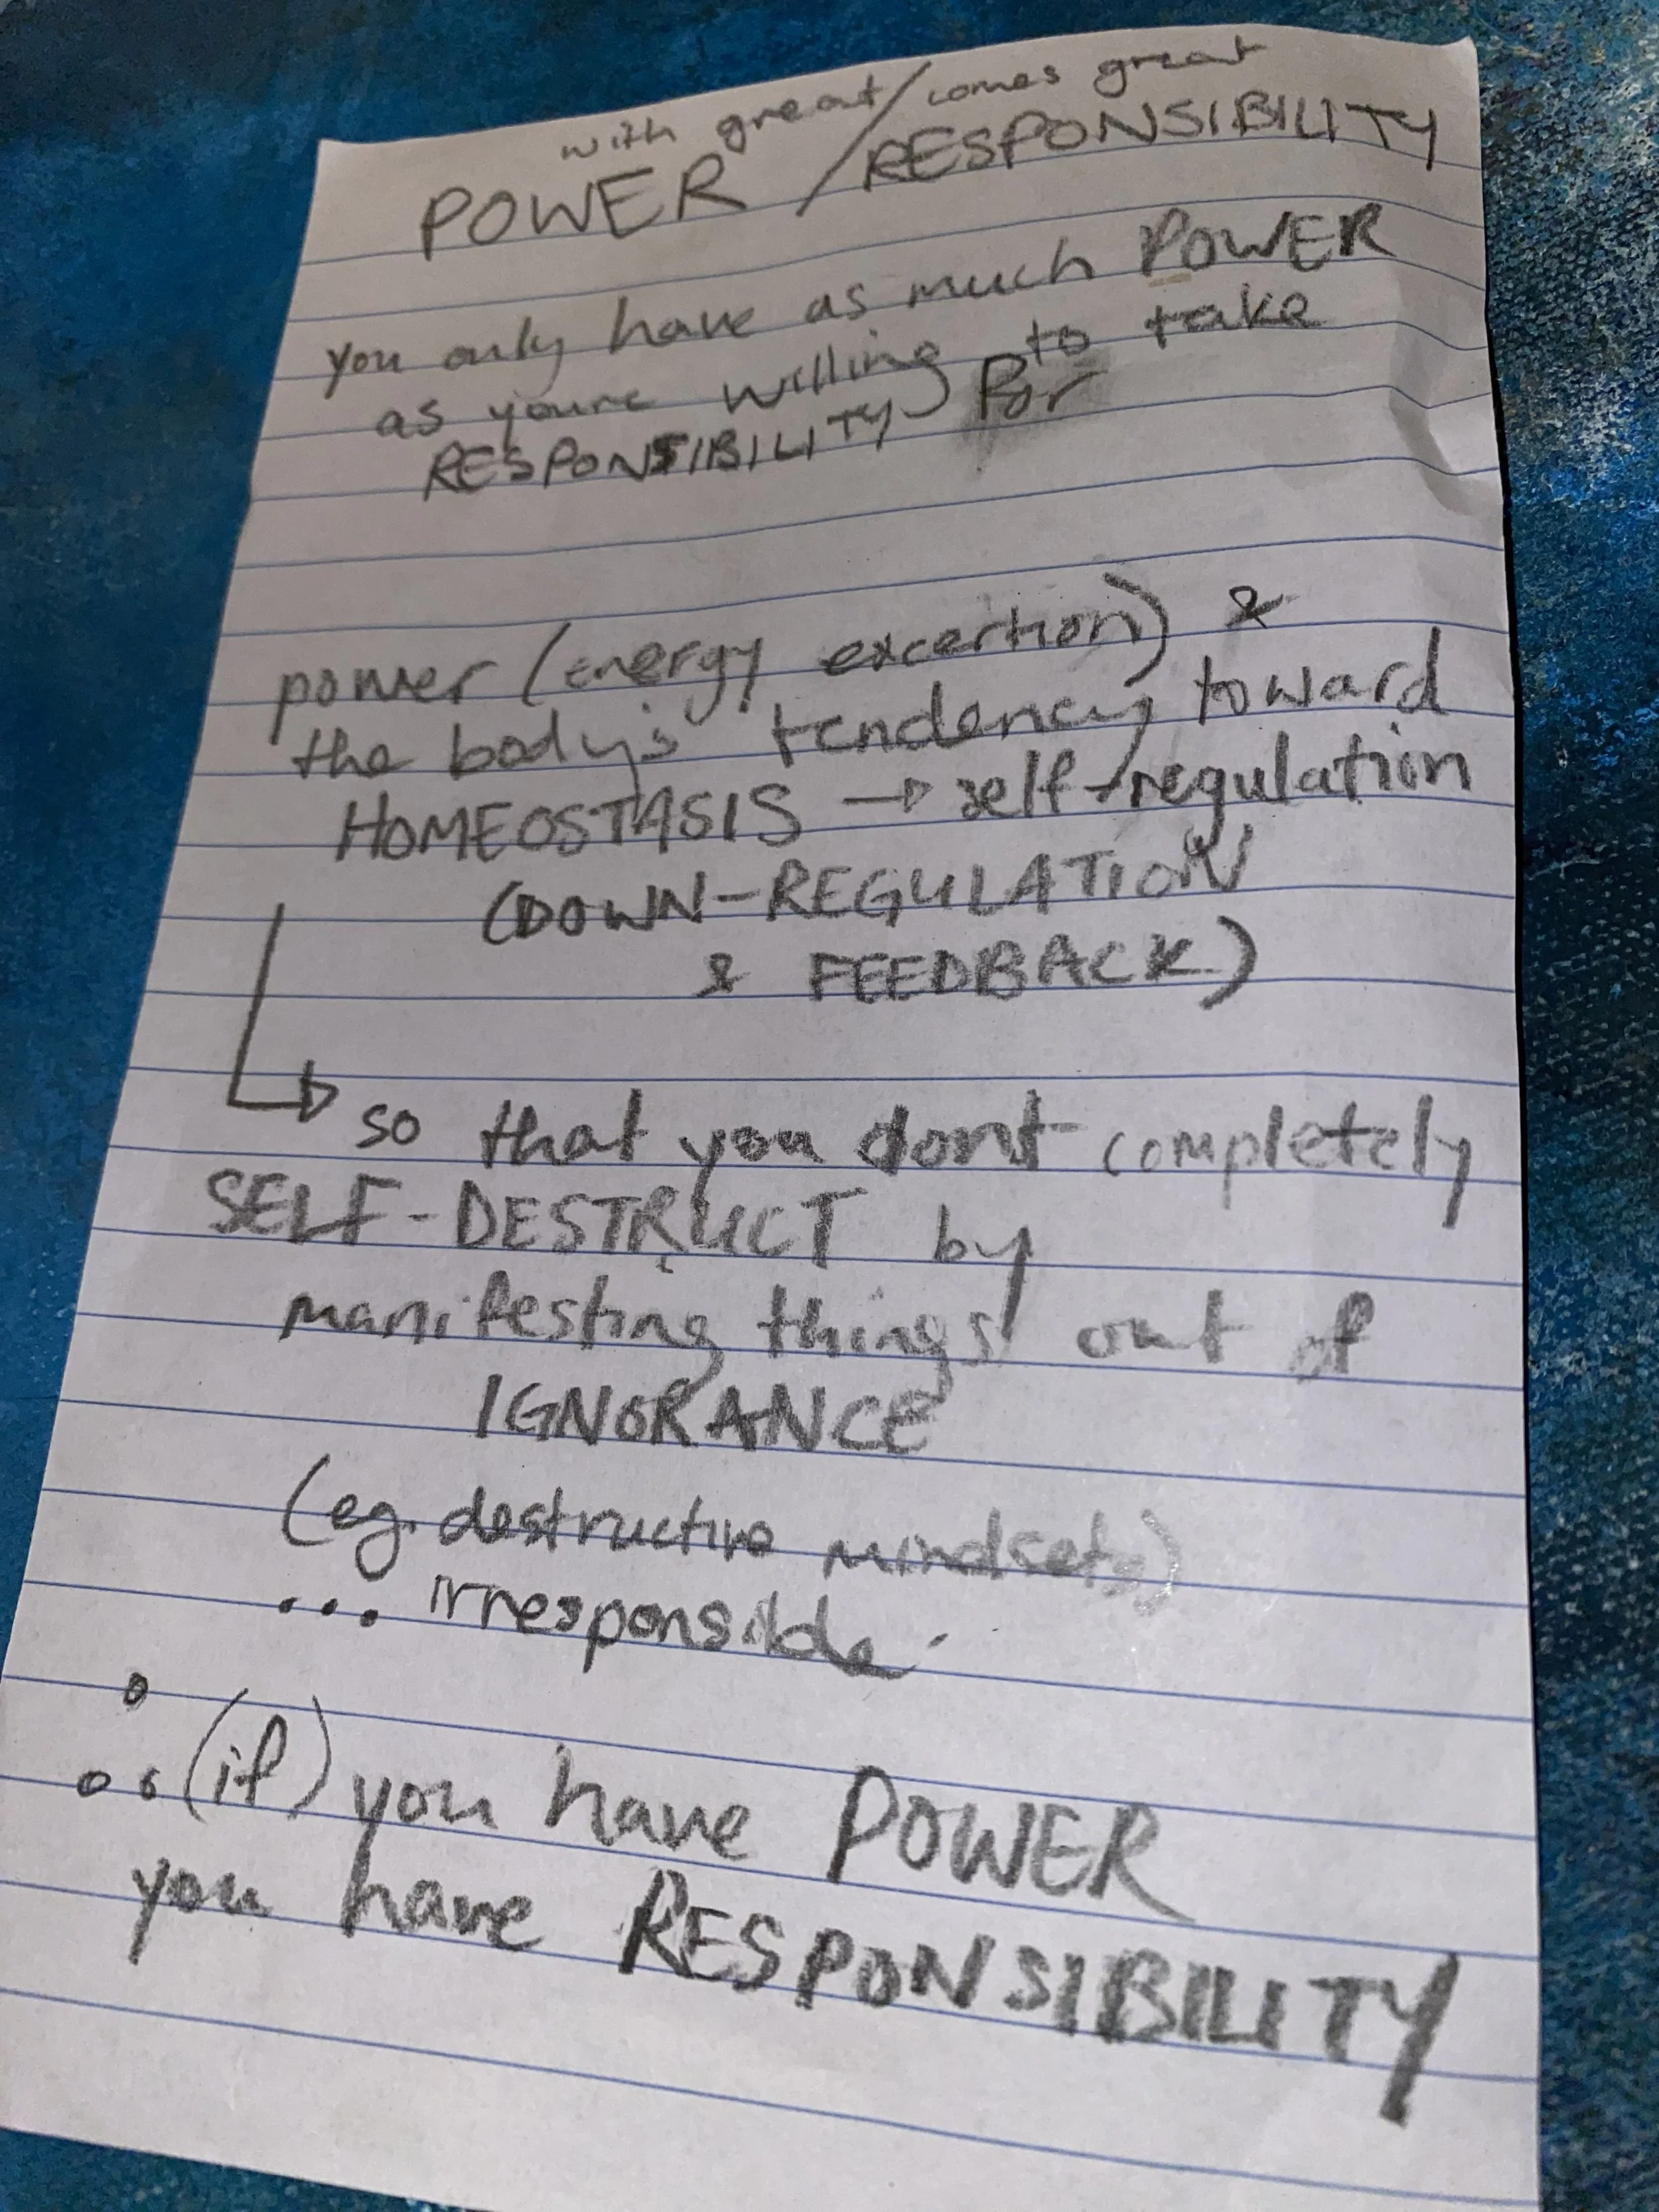 with great / comes great
POWER / RESPONSIBILITY
you only have as much POWER
as youre willing to take
RESPONSIBILITY for
power (energy excertion) &
the body's tendency toward
HOMEOSTASIS → self-regulation
(DOWN-REGULATION
& FEEDBACK)
↳ so that you dont completely
SELF-DESTRUCT by
manifesting things out of
IGNORANCE
(eg. destructive mindsets)
... irresponsible.
∴ (if) you have POWER
you have RESPONSIBILITY